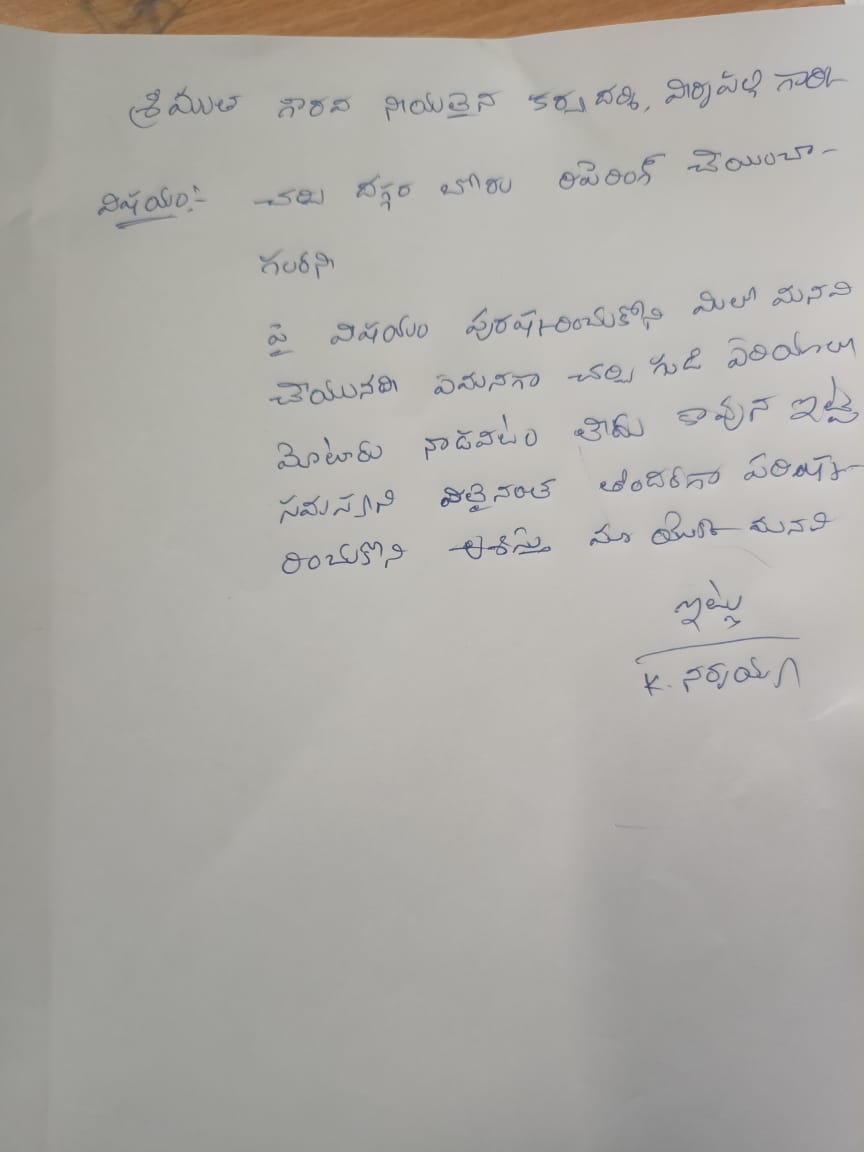 శ్రీముత గారవ నీయతైన కర్య దర్శి, వీర్నపల్లి గారికి
విషయం:- చర్చి దగ్గర బోరు రిపెరింగ్ చేయించా-
గలరని
పై విషయం పురష్కరించుకోని మిలా మనవి
చేయునది ఏమనగా చర్చి గుడి ఏరియాలా
మోటారు నాడవటం లేదు కావున ఇట్టి
సమస్యని విలైనంత తొందరగా పరిష్క-
రించుకొని ఆశిస్తు మా యొక్క మనవి
ఇట్లు
K. నర్సయ్య